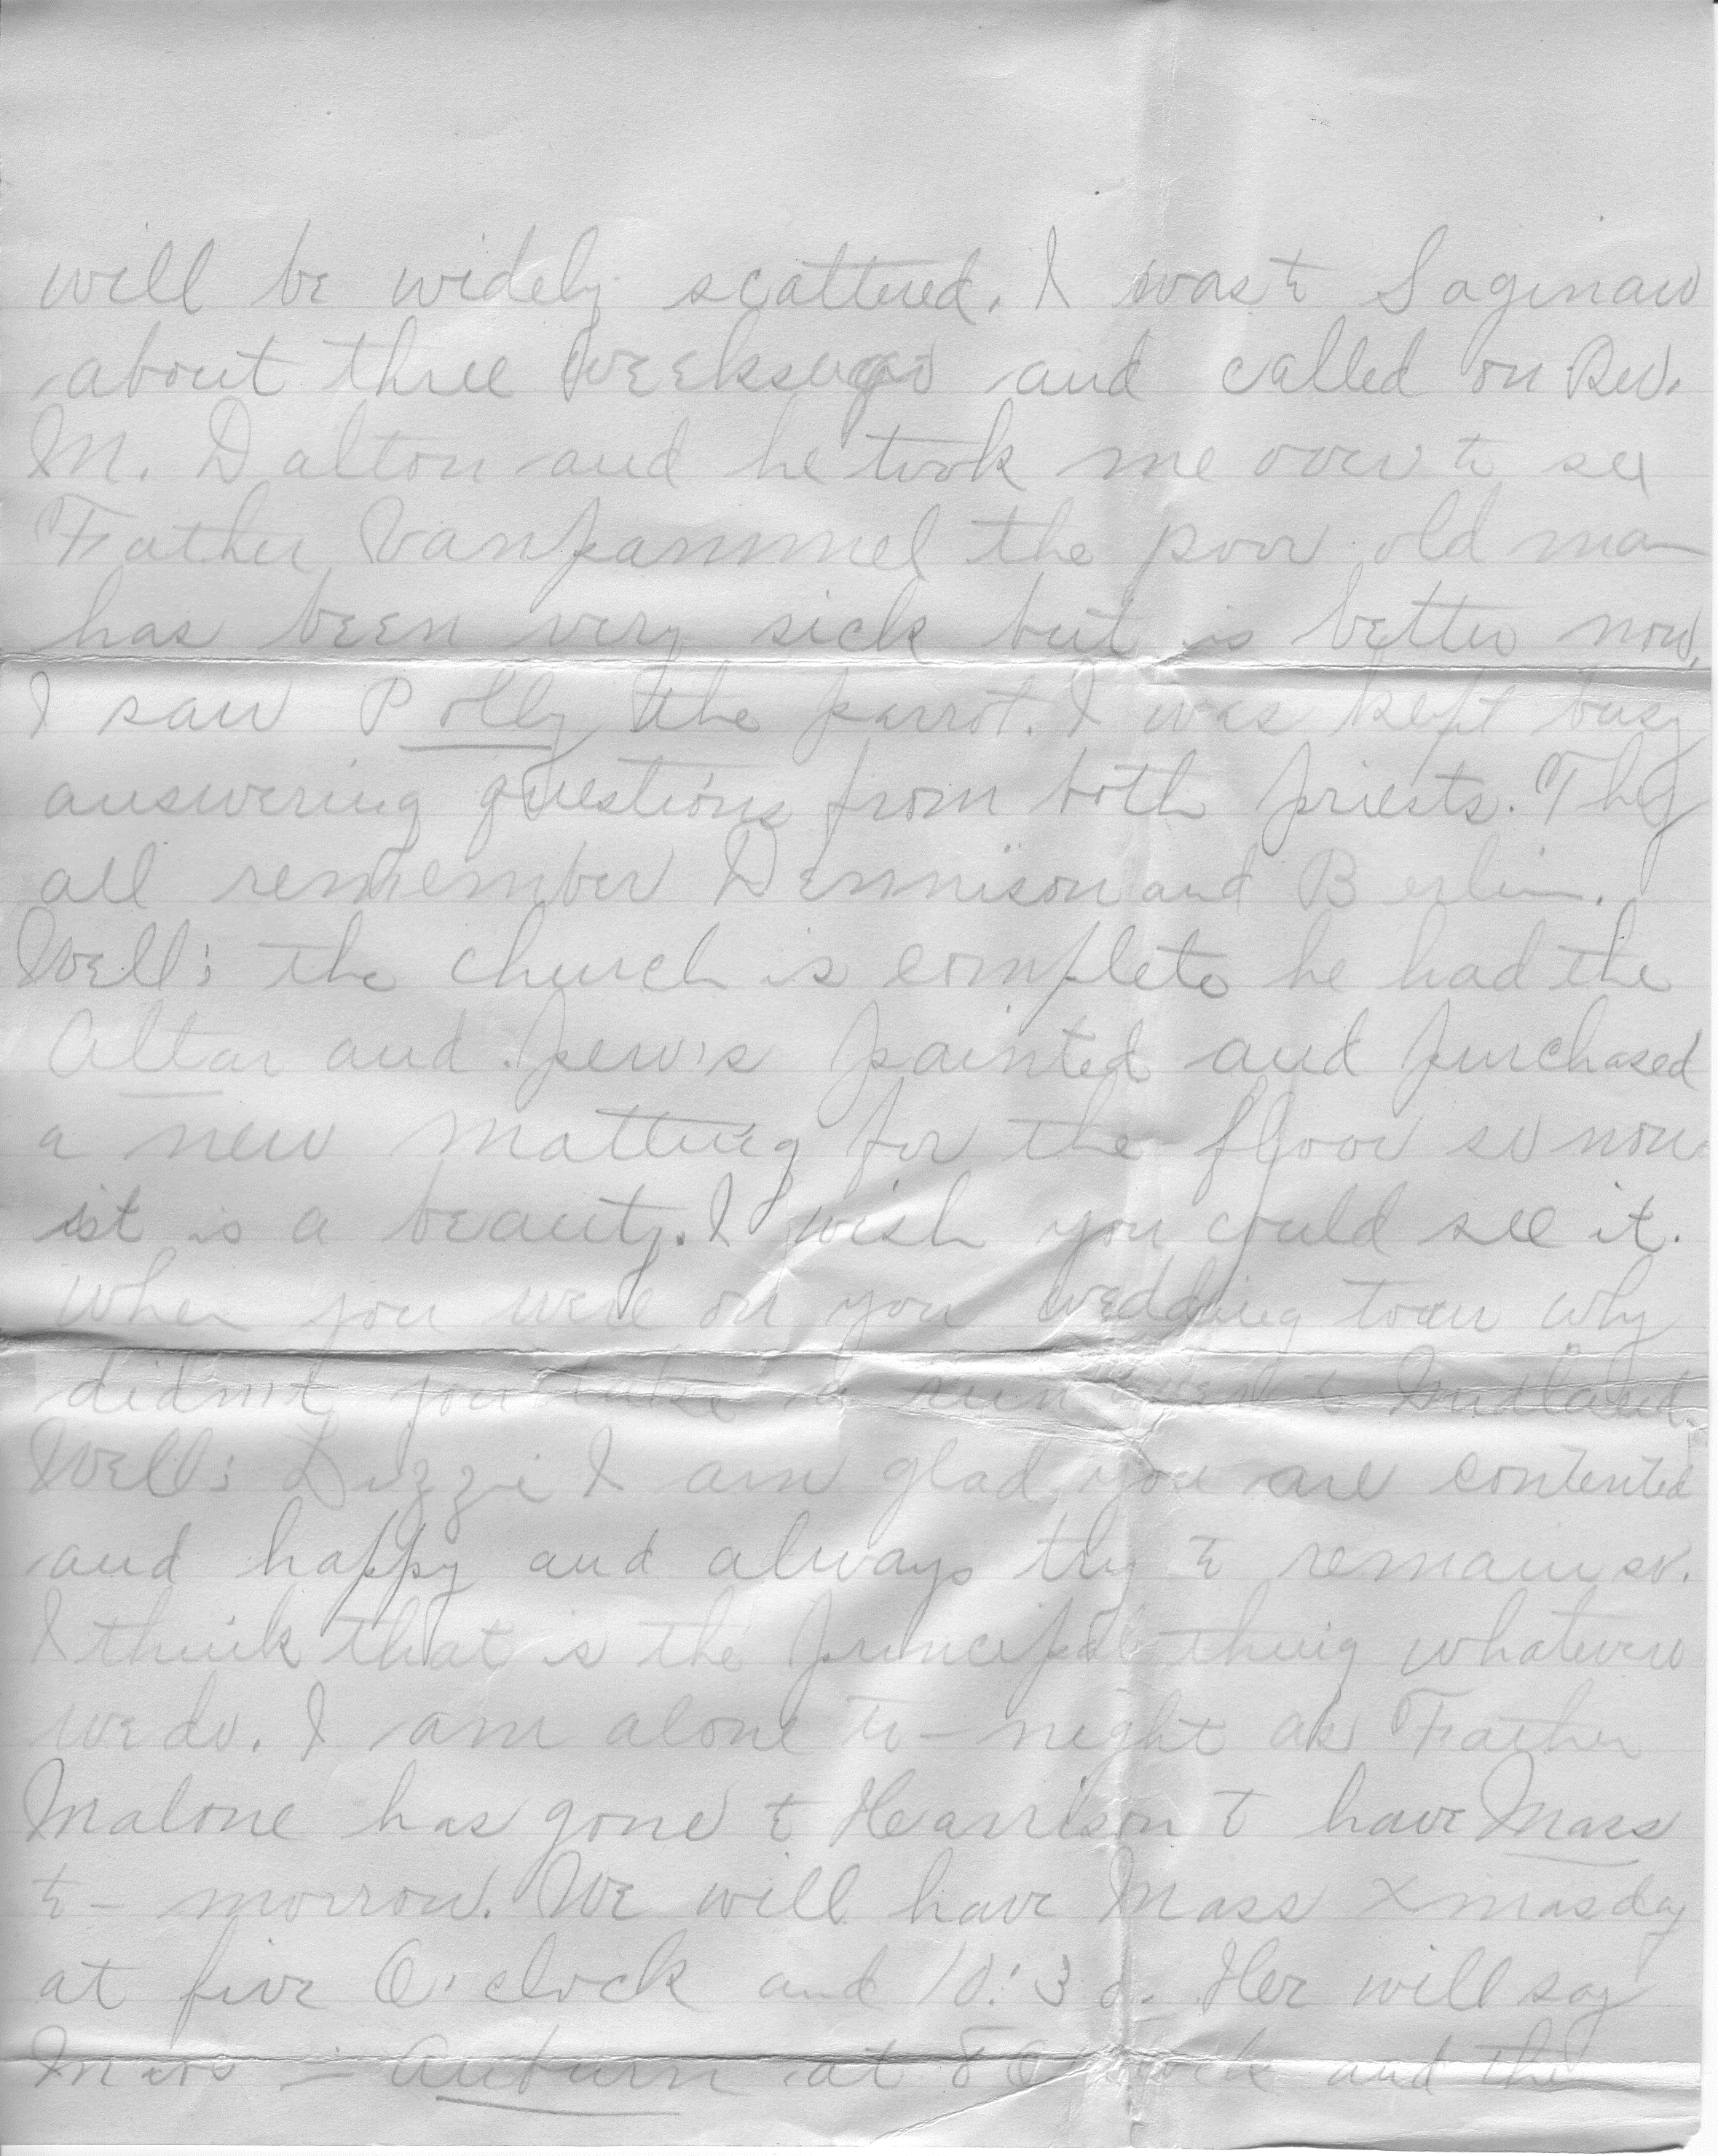 will be widely scattered. I was to Saginaw
about three weeks ago and called on Rev.
M. Dalton and he took me over to see
Father Vanpammel the poor old man
has been very sick but is better now.
I saw Polly the parrot. I was kept busy
answering questions from both priests. They
all remember Dennison and Berlin.
Well; the church is complete he had the
Altar and pew's painted and purchased
a new matting for the floor so now
ist is a beauty. I wish you could see it.
When you were on you wedding tour why
didn't you take a run to Midland.
Well; Lizzie I am glad you are contented
and happy and always try to remain so.
I think that is the principal thing whatever
we do. I am alone to-night as Father
Malone has gone to Harrison to have Mass
to-morrow. We will have Mass Xmas day
at five O'clock and 10:30. Her will say
Mass in Auburn at 8 O'clock and the